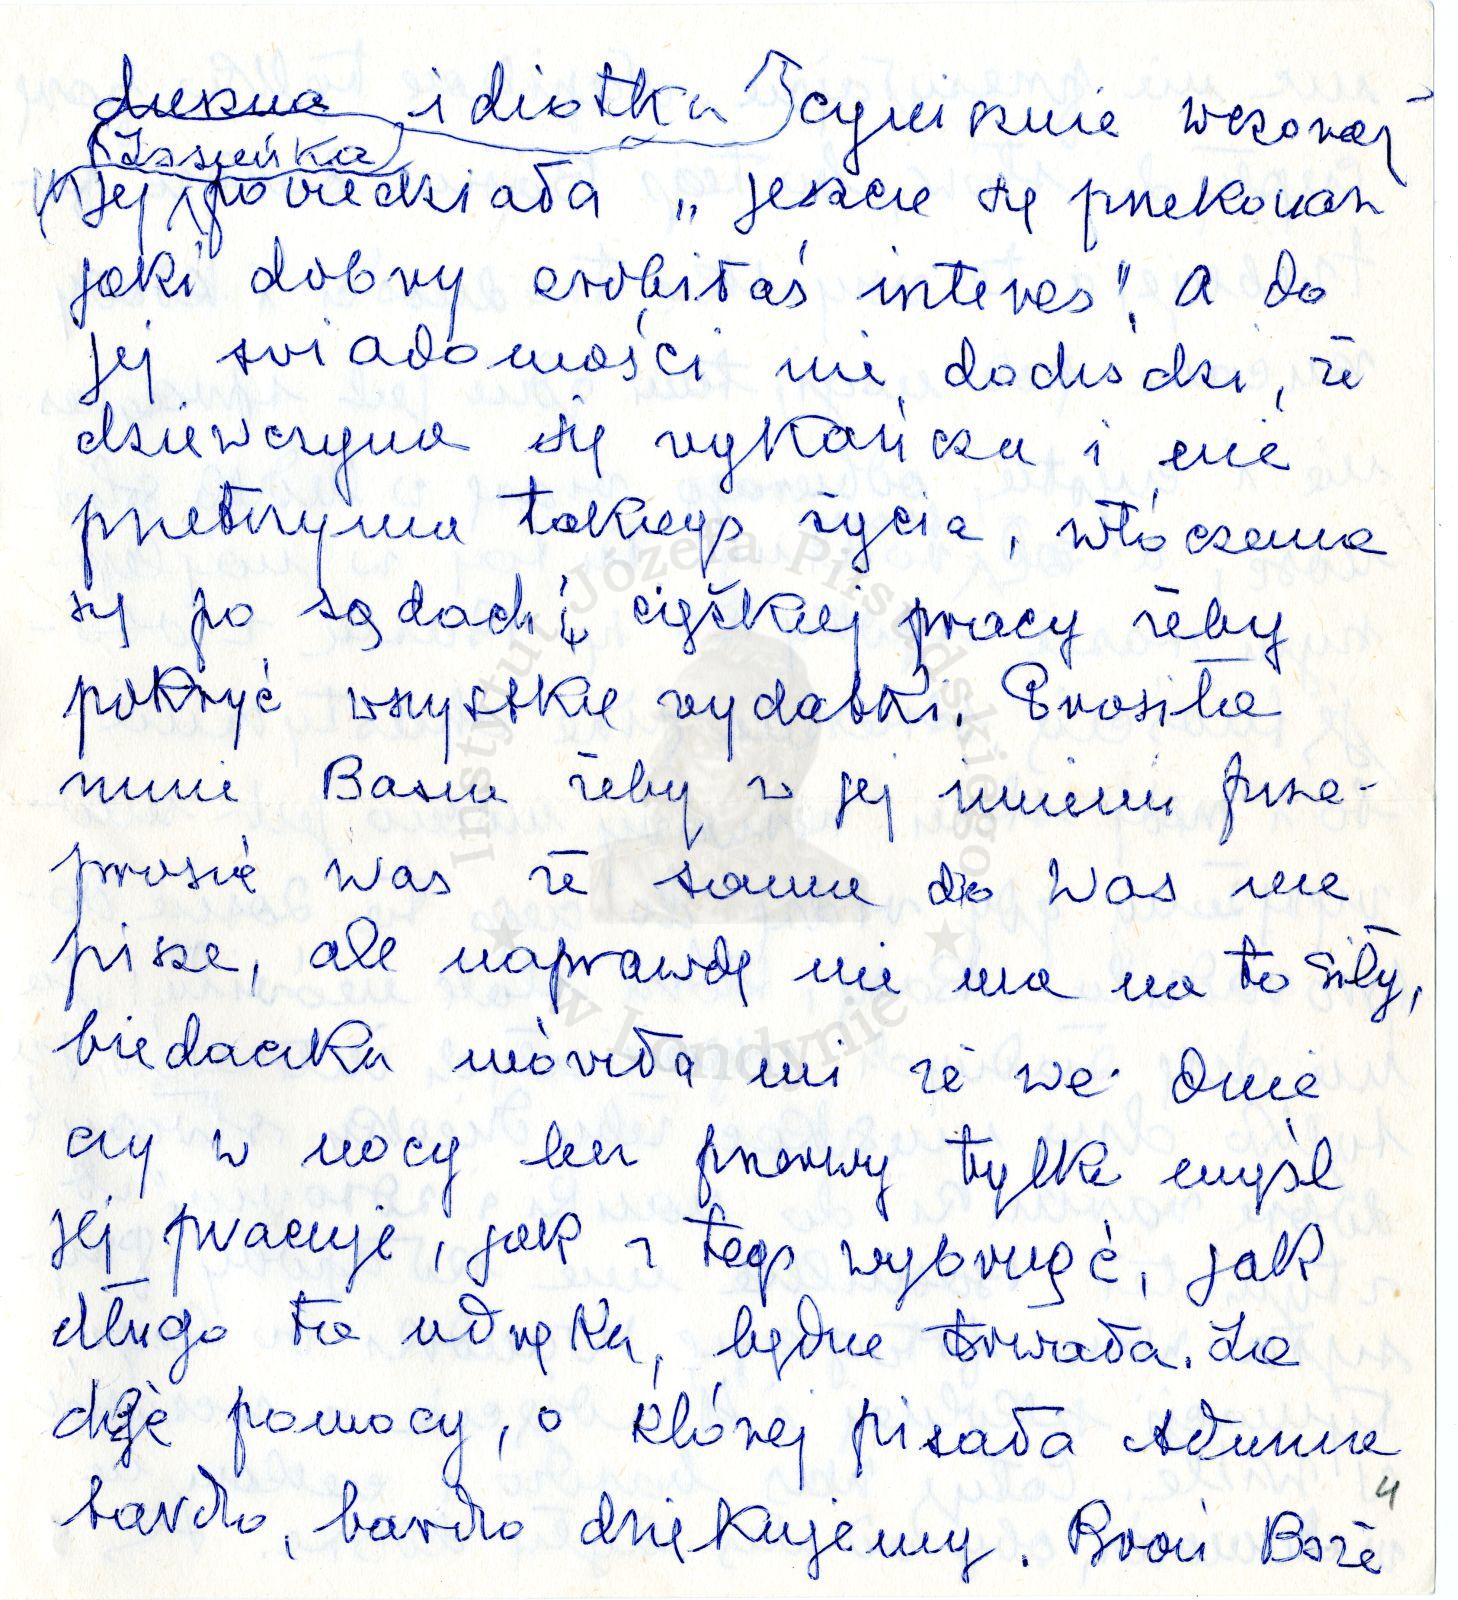 idiotka cynicznie wczoraj
(Issieńka)
jej powiedziała „ jeszcze się przekonasz
jaki dobry zrobiłaś interes". A do
jej świadomości nie dochodzi, że
dziewczyna się wykańcza i nie
przetrzyma takiego życia, włóczenia
się po sądach i ciężkiej pracy żeby
pokryć wszystkie wydatki. Prosiła
mnie Basia żeby w jej imieniu prze-
prosić Was że sama do Was nie
pisze, ale naprawdę nie ma na to siły,
biedaczka mówiła mi że we dnie
czy w nocy bez przerwy tylko myśl
jej pracuje, jak z tego wybrnąć, jak
długo ta udręka, będzie trwała. Za
chęć pomocy, o której pisała
bardzo, bardzo dziękujemy. Broń Boże
4
Instytut Józefa Piłsudskiego
w Londynie